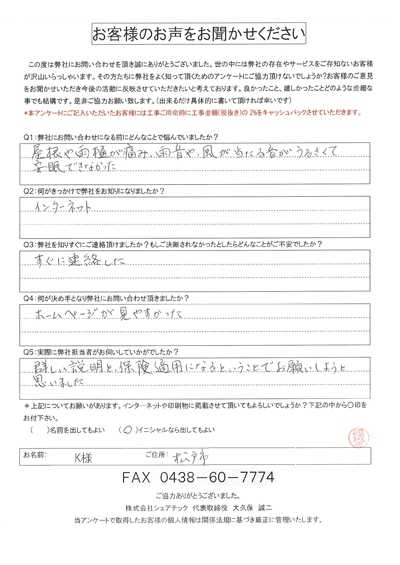 お客様のお声をお聞かせください
この度は弊社にお問い合わせを頂き誠にありがとうございました。世の中には弊社の存在やサービスをご存知ないお客様
が沢山いらっしゃいます。その方たちに弊社をよく知って頂くためのアンケートにご協力頂けないでしょうか?お客様のご意見
をお聞かせいただき今後の活動に反映させていただきたいと考えております。良かったこと、嬉しかったことどのような些細な
事でも結構です。是非ご協力お願い致します。(出来るだけ具体的に書いて頂ければ幸いです)
*本アンケートにご記入いただいたお客様には工事ご用命時に工事金額(税抜き)の2%をキャッシュバックさせていただきます。
Q1:弊社にお問い合わせになる前にどんなことで悩んでいましたか?
屋根や雨樋が痛み、雨音や、風が当たる音がうるさくて
安眠できなかった
Q2:何がきっかけで弊社をお知りになりましたか?
インターネット
Q3:弊社を知りすぐにご連絡頂けましたか?もしご決断されなかったとしたらどんなことがご不安でしたか?
すぐに連絡した
Q4:何が決め手となり弊社にお問い合わせ頂きましたか?
ホームページが見やすかった
Q5:実際に弊社担当者がお伺いしていかがでしたか?
詳しい説明と、保険適用になるということでお願いしようと
思いました
*上記についてお願いがあります。インターネットや印刷物に掲載させて頂いてもよろしいでしょうか?下記の中から〇印を
お付下さい。
( )名前を出してもよい (〇)イニシャルなら出してもよい
お名前: K様 ご住所: 松戸市
FAX 0438-60-7774
ご協力ありがとうございました。
株式会社シェアテック 代表取締役 大久保 誠二
当アンケートで取得したお客様の個人情報は関係法規に基づき厳正に管理いたします。